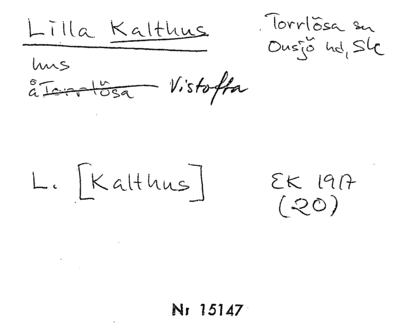 Lilla Kalthus
Torrlösa sn
Onsjö hd, Sk
hus
å Torrlösa Vistofta
L. [Kalthus]
EK 1917
(20)
Nr 15147